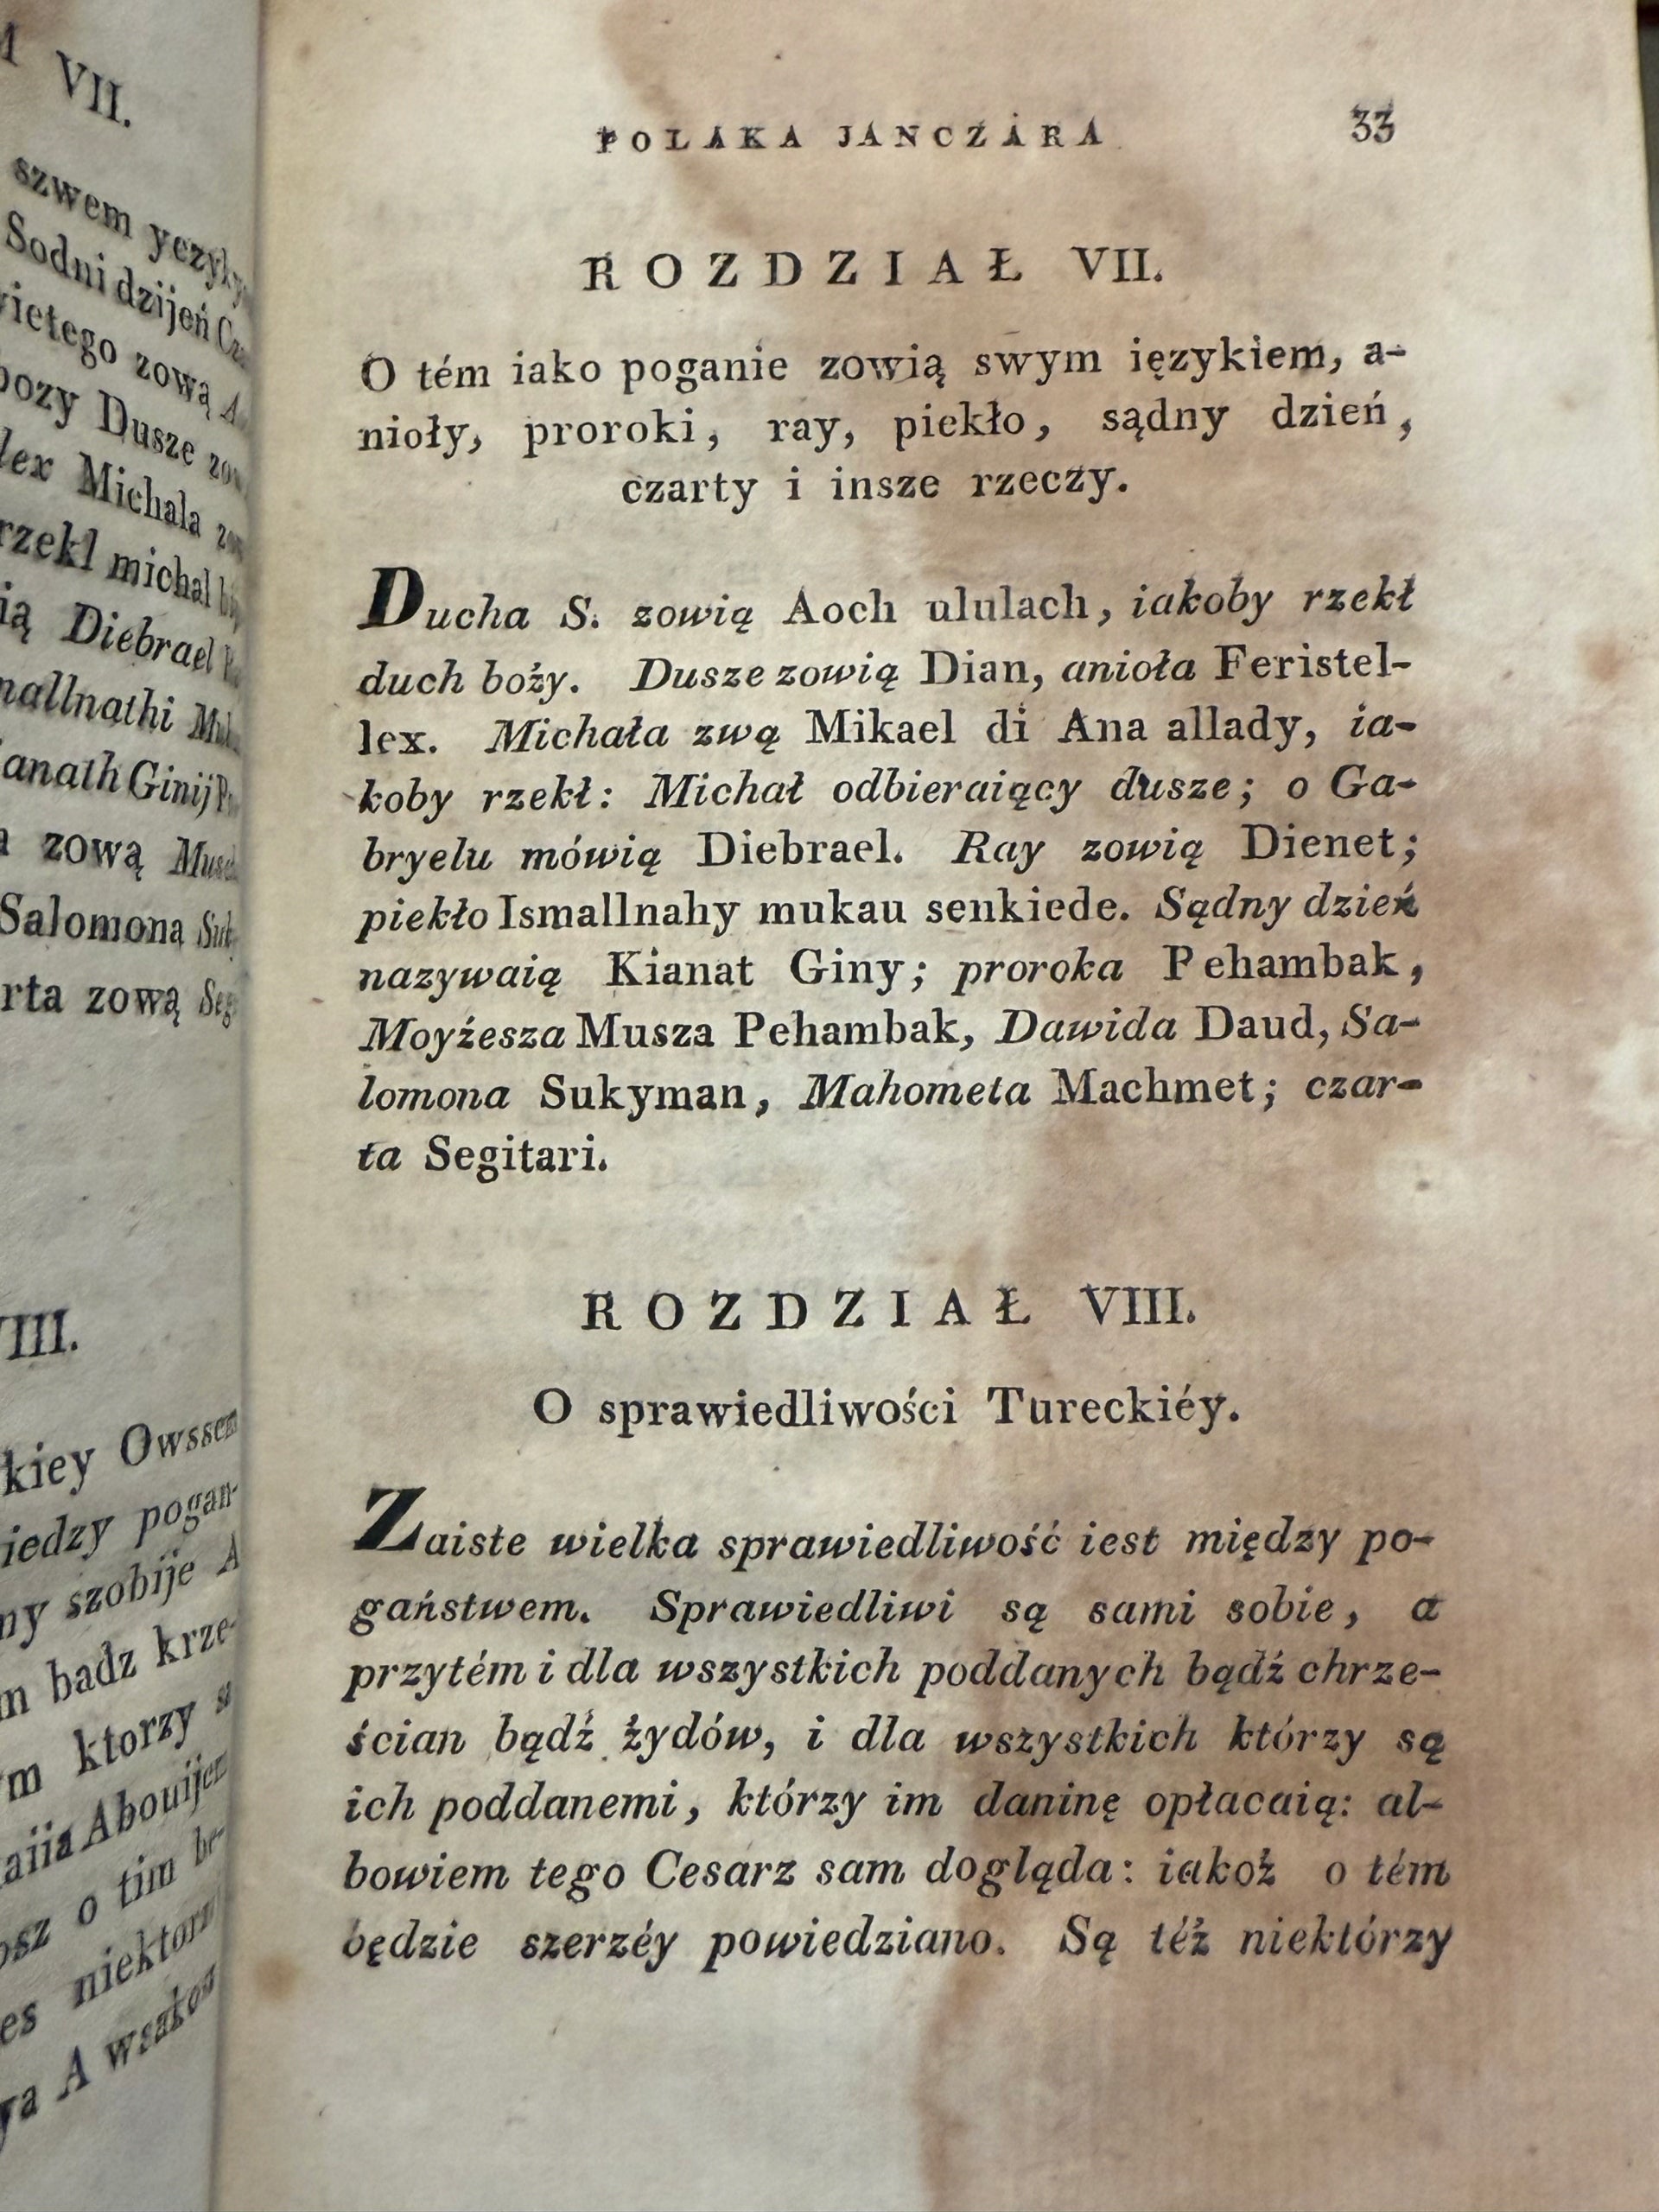 VII.
szwem
Sodni dzijeń
zową
Dusze
Michala
michal
Diebrael
Ginij
zową
Salomona
zową
VIII.
kiey
pogan-
szobije A
badz krze-
ktorzy
o tim
niektorzy
A
POLAKA JANCZARA
33
ROZDZIAŁ VII.
O tém iako poganie zowią swym ięzykiem, a-
nioły, proroki, ray, piekło, sądny dzień,
czarty i insze rzeczy.
Ducha S. zowią Aoch ululach, iakoby rzekł
duch boży. Dusze zowią Dian, anioła Feristel-
lex. Michała zwą Mikael di Ana allady, ia-
koby rzekł: Michał odbieraiący dusze; o Ga-
bryelu mówią Diebrael. Ray zowią Dienet;
piekło Ismallnahy mukau senkiede. Sądny dzień
nazywaią Kianat Giny; proroka Pehambak,
Moyżesza Musza Pehambak, Dawida Daud, Sa-
lomona Sukyman, Mahometa Machmet; czar-
ta Segitari.
ROZDZIAŁ VIII.
O sprawiedliwości Tureckiéy.
Zaiste wielka sprawiedliwość iest między po-
gaństwem. Sprawiedliwi są sami sobie, a
przytém i dla wszystkich poddanych bądź chrze-
ścian bądź żydów, i dla wszystkich którzy są
ich poddanemi, którzy im daninę opłacaią: al-
bowiem tego Cesarz sam dogląda: iakoż o tém
będzie szerzéy powiedziano. Są téż niektórzy